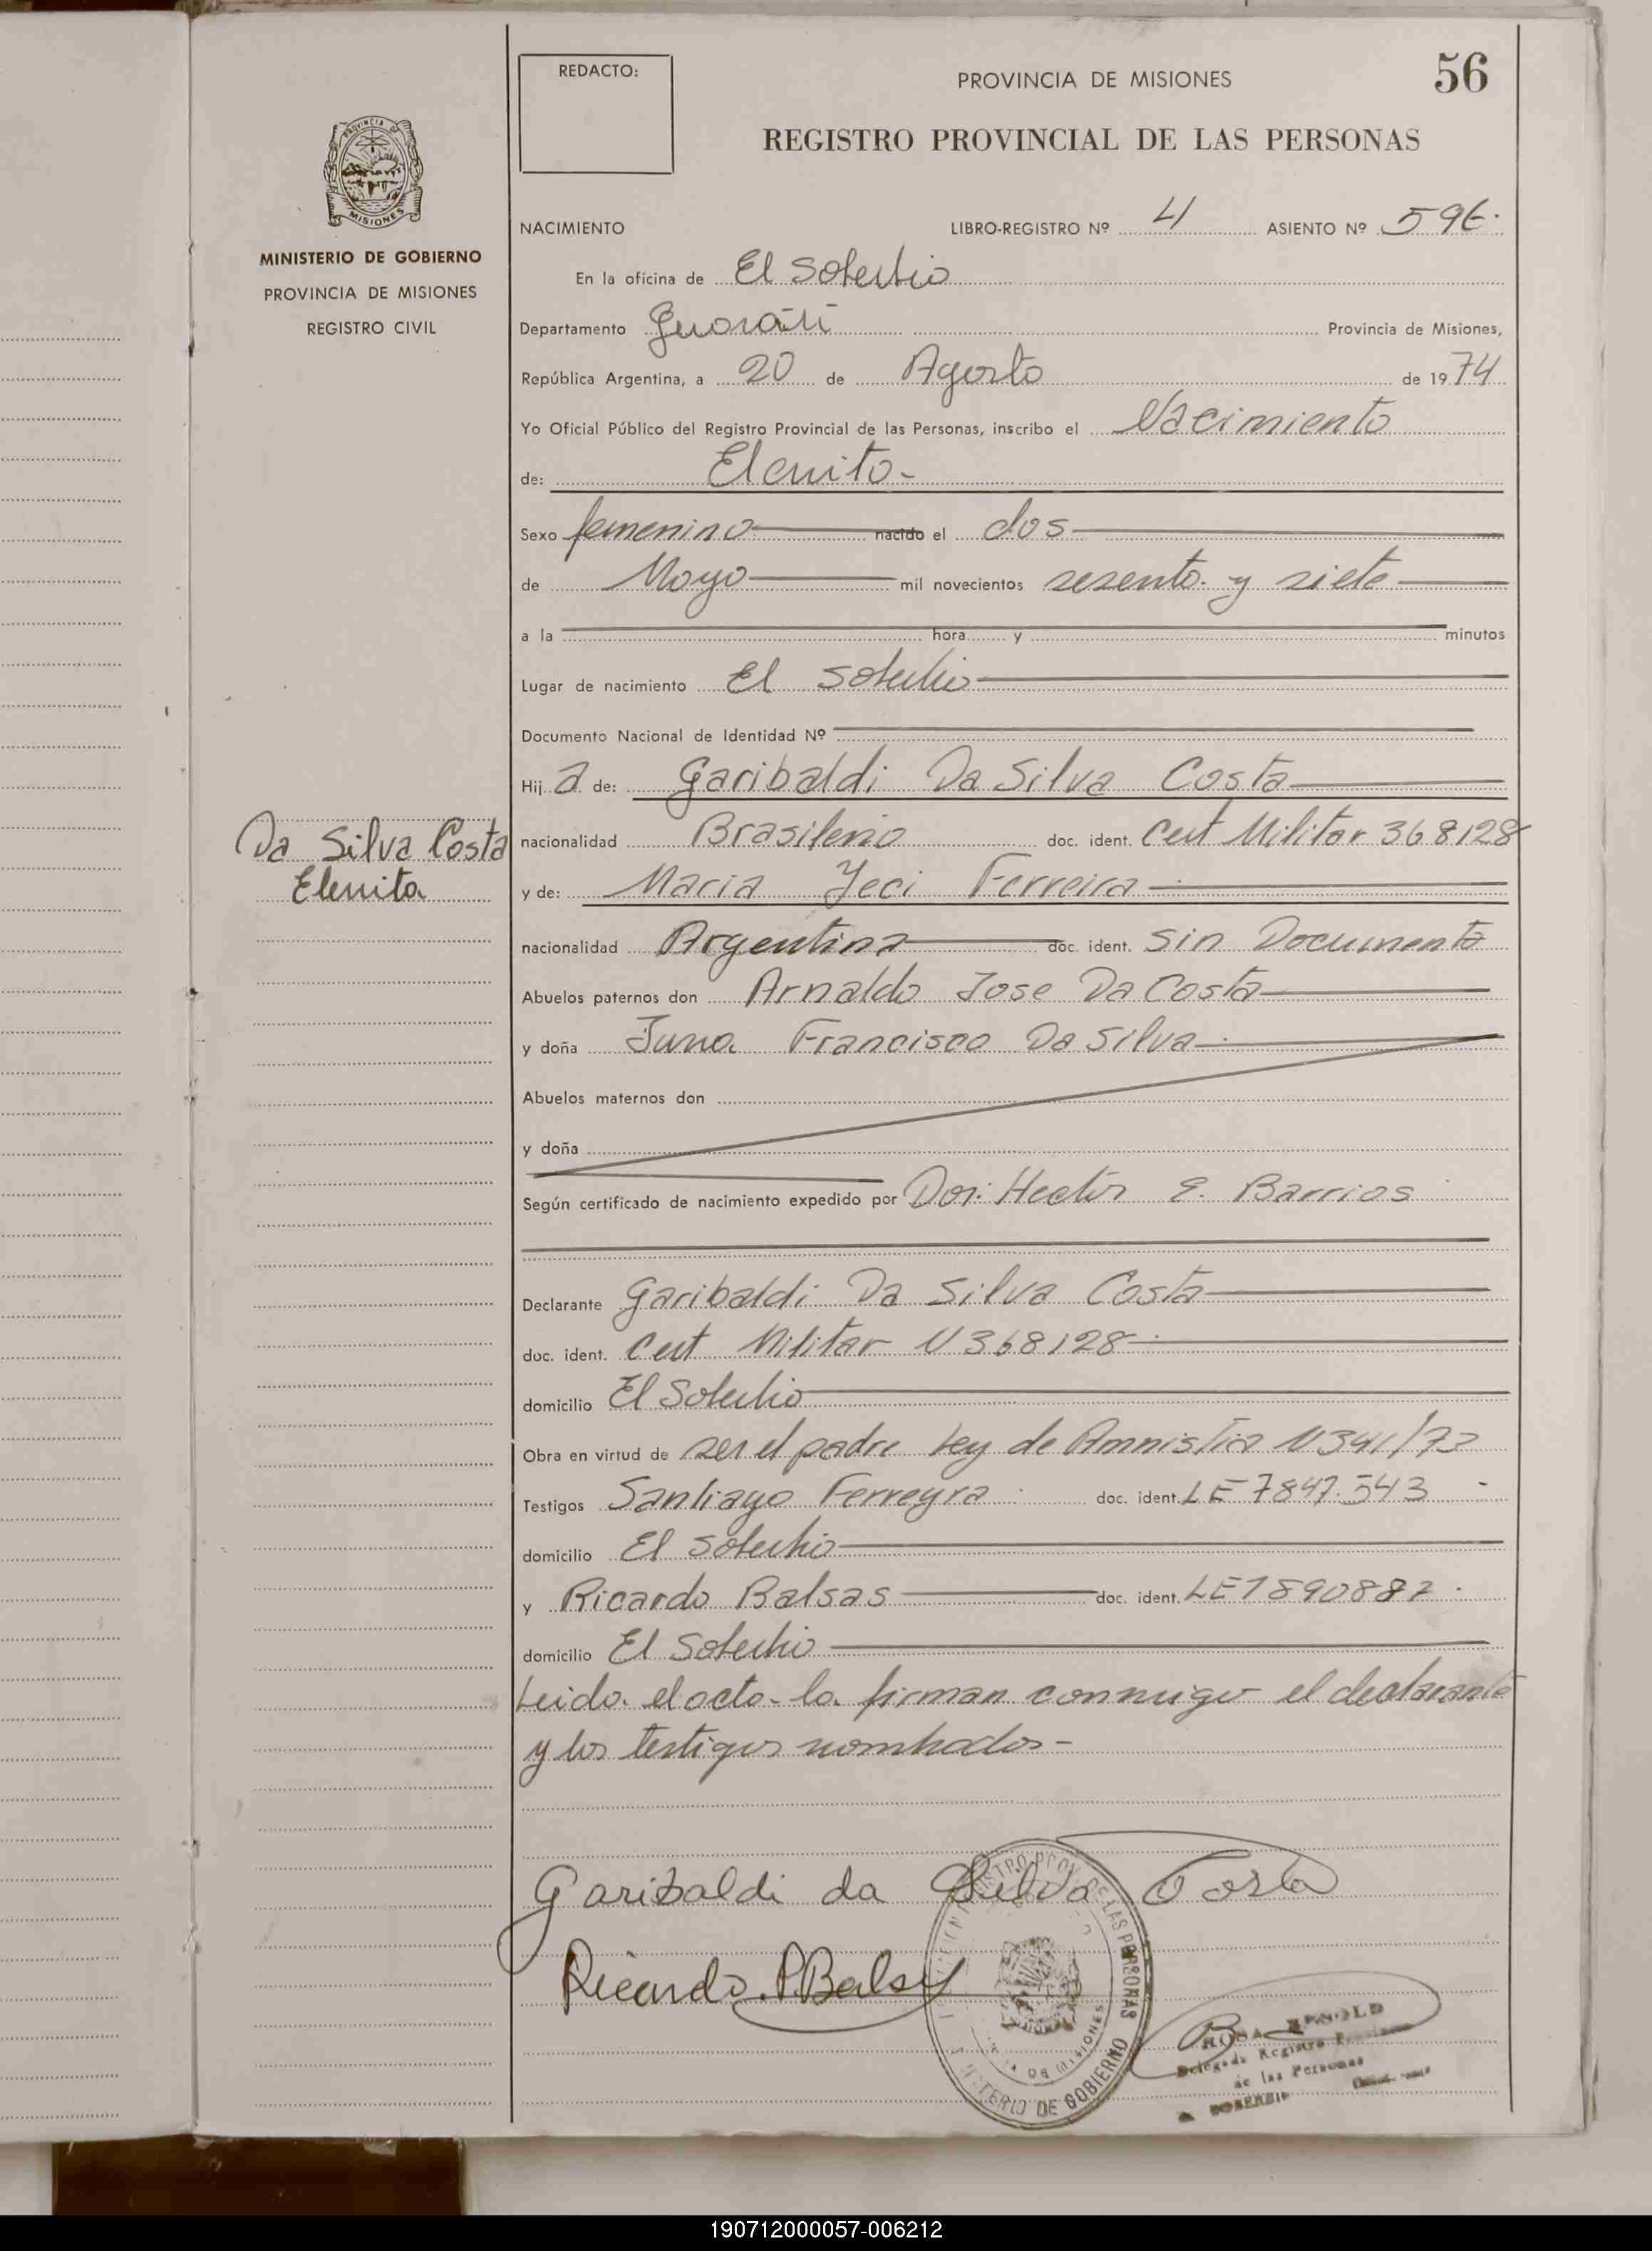 REDACTO:
PROVINCIA DE MISIONES
56
REGISTRO PROVINCIAL DE LAS PERSONAS
PROVINCIA DE
MISIONES
MINISTERIO DE GOBIERNO
PROVINCIA DE MISIONES
REGISTRO CIVIL
NACIMIENTO LIBRO-REGISTRO Nº 4 ASIENTO Nº 596.
En la oficina de El Soberbio
Departamento Guarani Provincia de Misiones,
República Argentina, a 20 de Agosto de 1974
Yo Oficial Público del Registro Provincial de las Personas, inscribo el Nacimiento
de: Elenita-
Sexo femenino nacido el dos
de Mayo mil novecientos sesenta y siete
a la hora y minutos
Lugar de nacimiento El Soberbio
Documento Nacional de Identidad Nº
Hij a de: Garibaldi Da Silva Costa
Da Silva Costa
Elenita
nacionalidad Brasileño doc. ident. Cert Militar 368128
y de: Maria Jeci Ferreira
nacionalidad Argentina doc. ident. Sin Documento
Abuelos paternos don Arnaldo Jose Da Costa
y doña Juna Francisca Da Silva
Abuelos maternos don
y doña
Según certificado de nacimiento expedido por Dor. Hector E. Barrios
Declarante Garibaldi Da Silva Costa
doc. ident. Cert Militar N 368128
domicilio El Soberbio
Obra en virtud de ser el padre Ley de Amnistia N 341/73
Testigos Santiago Ferreyra doc. ident. LE 7847.543
domicilio El Soberbio
y Ricardo Balsas doc. ident. LE 7890887.
domicilio El Soberbio
Leida el acta la firman conmigo el declarante
y los testigos nombrados-
Garibaldi da Silva Costa
Ricardo P. Balsa
REGISTRO PROV. DE LAS PERSONAS
MINISTERIO DE GOBIERNO
DE MISIONES
ROSA
Delegada Registro Provincial
de las Personas
190712000057-006212